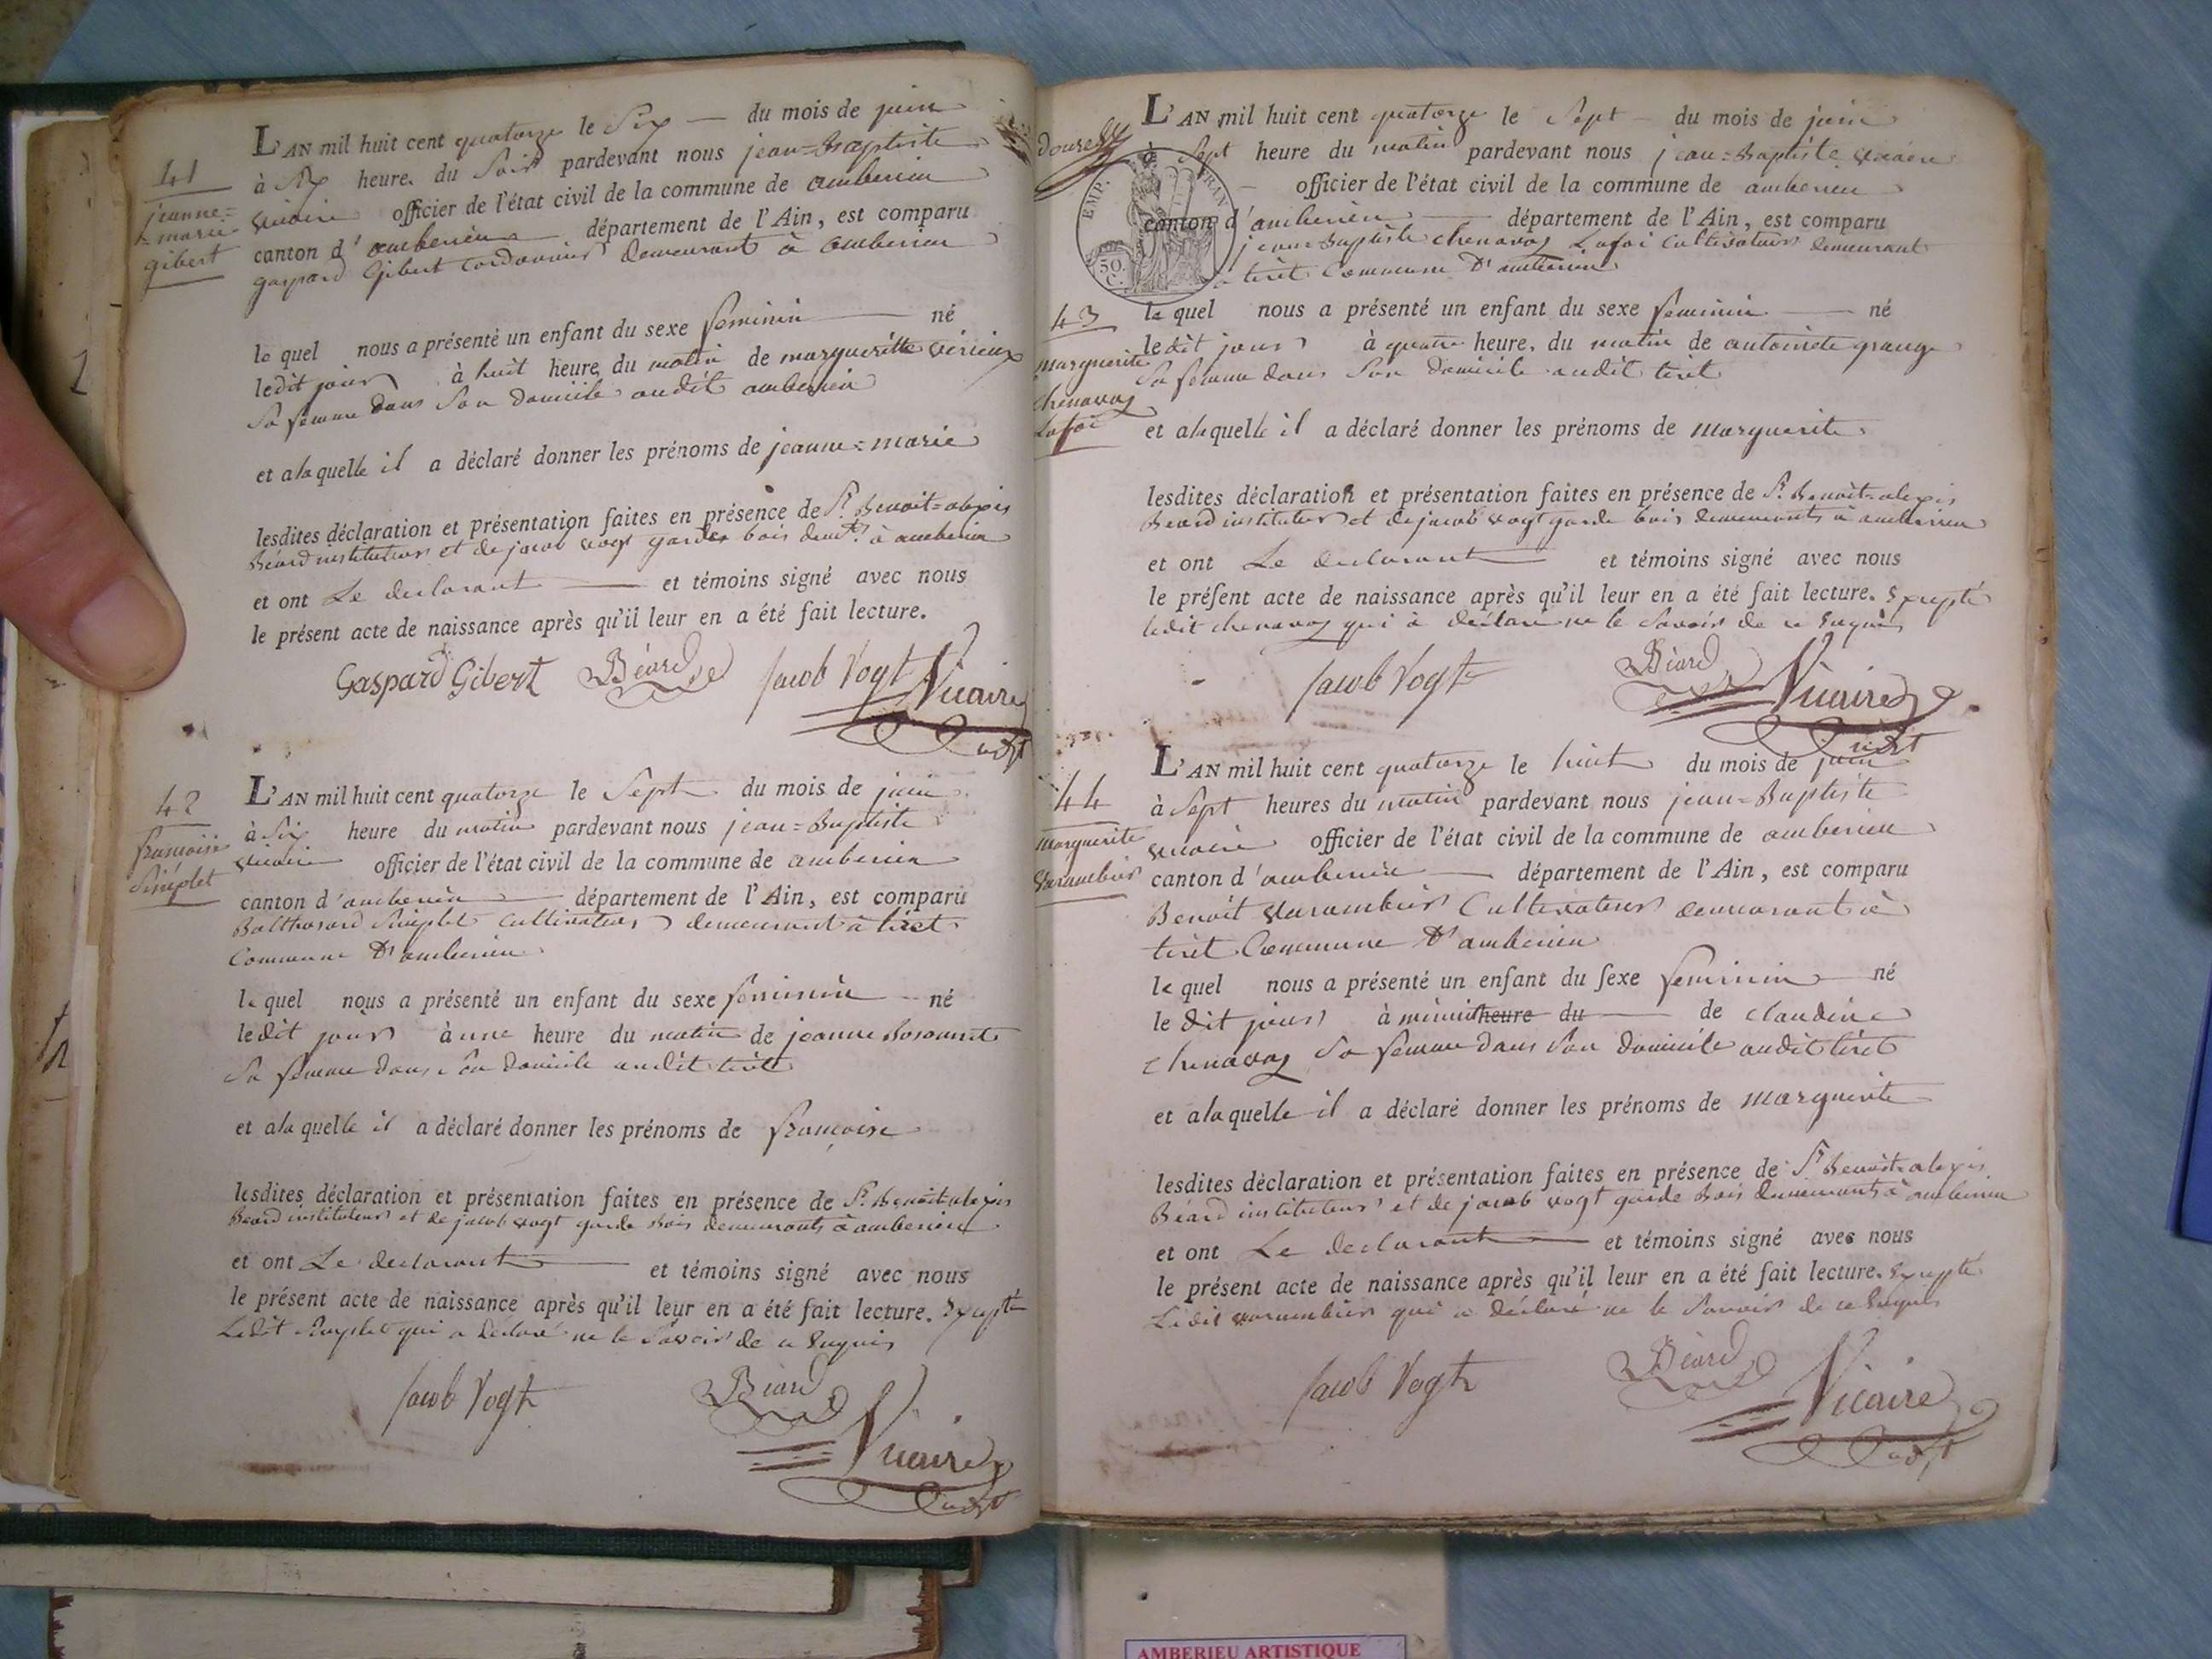 41
jeanne=
=marie
gibert
L'AN mil huit cent quatorze le Six du mois de juin
à Six heure du Soir pardevant nous jean=Baptiste
vicaire officier de l'état civil de la commune de amberieu
canton d'amberieu département de l'Ain, est comparu
gaspard Gibert Cordonnier demeurant à amberieu
le quel nous a présenté un enfant du sexe feminin né
ledit jour à huit heure du matin de margueritte vérieux
Sa femme dans Son domicile audit amberieu
et a la quelle il a déclaré donner les prénoms de jeanne=marie
lesdites déclaration et présentation faites en présence de Sr. Benoit=alexis
Béard instituteur et de jacob vogt garde bois demt. à amberieu
et ont Le declarant et témoins signé avec nous
le présent acte de naissance après qu'il leur en a été fait lecture.
Gaspard Gibert Béard Jacob Vogt Vicaire
adjt
42
françoise
Siréplet
L'AN mil huit cent quatorze le Sept du mois de juin
à Six heure du matin pardevant nous jean=Baptiste
vicaire officier de l'état civil de la commune de amberieu
canton d'amberieu département de l'Ain, est comparu
Balthasard cultivateur demeurant à tiret
Commune D'amberieu
le quel nous a présenté un enfant du sexe feminin né
ledit jour à une heure du matin de jeanne
Sa femme dans Son domicile audit tiret
et a la quelle il a déclaré donner les prénoms de françoise
lesdites déclaration et présentation faites en présence de Sr. Benoit=alexis
Beard instituteur et de jacob vogt garde bois demeurants à amberieu
et ont Le declarant et témoins signé avec nous
le présent acte de naissance après qu'il leur en a été fait lecture. Excepté
Ledit qui a déclaré ne le Savoir de ce Enquis
Jacob Vogt Béard
Vicaire
adjt
L'AN mil huit cent quatorze le Sept du mois de juin
à Sept heure du matin pardevant nous jean=Baptiste vicaire
officier de l'état civil de la commune de amberieu
canton d'amberieu département de l'Ain, est comparu
jean Baptiste chenavaz Lafoi Cultivateur demeurant
à tiret Commune D'amberieu
EMP. FRAN
50.
C.
43
marguerite
chenavaz
Lafoi
le quel nous a présenté un enfant du sexe feminin né
ledit jour à quatre heure, du matin de antoinete grange
Sa femme dans Son domicile audit tiret
et a la quelle il a déclaré donner les prénoms de marguerite
lesdites déclaration et présentation faites en présence de Sr. Benoit=alexis
Beard instituteur et de jacob vogt garde bois demeurants à amberieu
et ont Le declarant et témoins signé avec nous
le présent acte de naissance après qu'il leur en a été fait lecture. Excepté
ledit chenavaz qui à déclaré ne le Savoir de ce Enquis
Jacob Vogt Béard Vicaire
adjt
44
marguerite
Varambier
L'AN mil huit cent quatorze le huit du mois de juin
à Sept heures du matin pardevant nous jean=Baptiste
vicaire officier de l'état civil de la commune de amberieu
canton d'amberieu département de l'Ain, est comparu
Benoit Varambier Cultivateur demeurant à
tiret Commune D'amberieu
le quel nous a présenté un enfant du sexe feminin né
le dit jour à minuit heure du de claudine
chenavaz Sa femme dans Son domicile audit tiret
et a la quelle il a déclaré donner les prénoms de marguerite
lesdites déclaration et présentation faites en présence de Sr. Benoit=alexis
Beard instituteur et de jacob vogt garde bois demeurants à amberieu
et ont Le declarant et témoins signé avec nous
le présent acte de naissance après qu'il leur en a été fait lecture. Excepté
Ledit varambier qui a déclaré ne le Savoir de ce Enquis
Jacob Vogt Béard Vicaire
adjt
AMBERIEU ARTISTIQUE